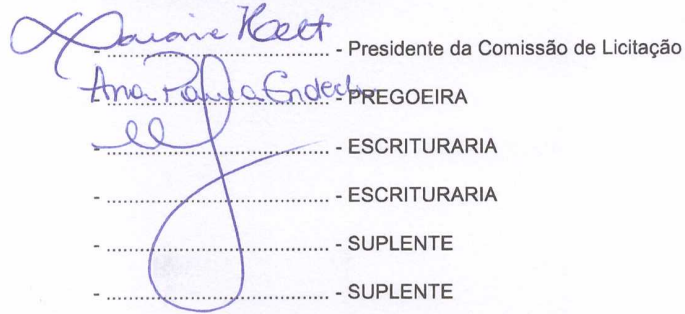 - ............................................ - Presidente da Comissão de Licitação
Ana Paula - PREGOEIRA
- ............................................ - ESCRITURARIA
- ............................................ - ESCRITURARIA
- ............................................ - SUPLENTE
- ............................................ - SUPLENTE